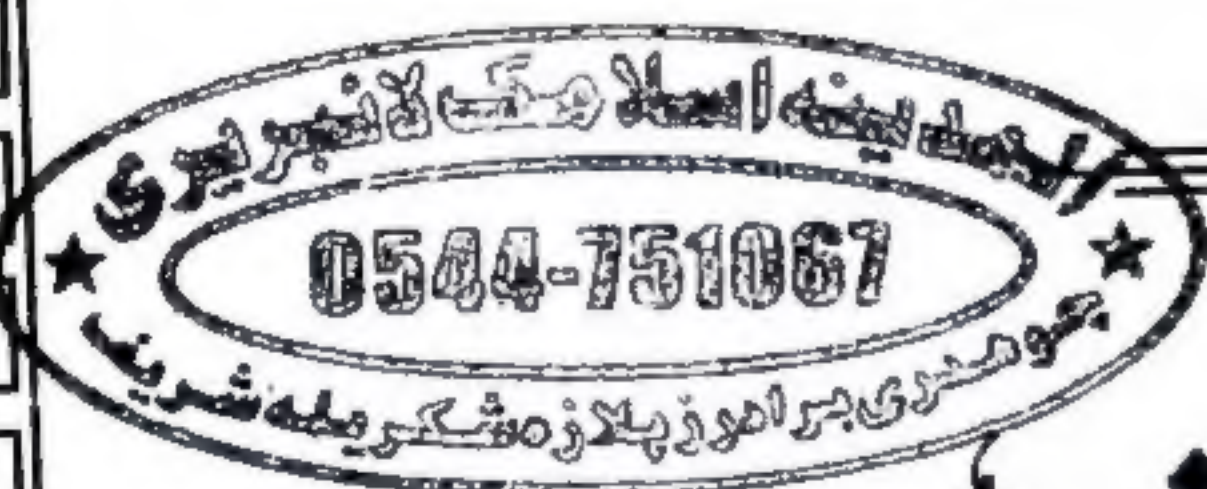 المدینہ اسلامک لائبریری
0544-751067
چوہدری برادرز پلازہ شکریلہ شریف